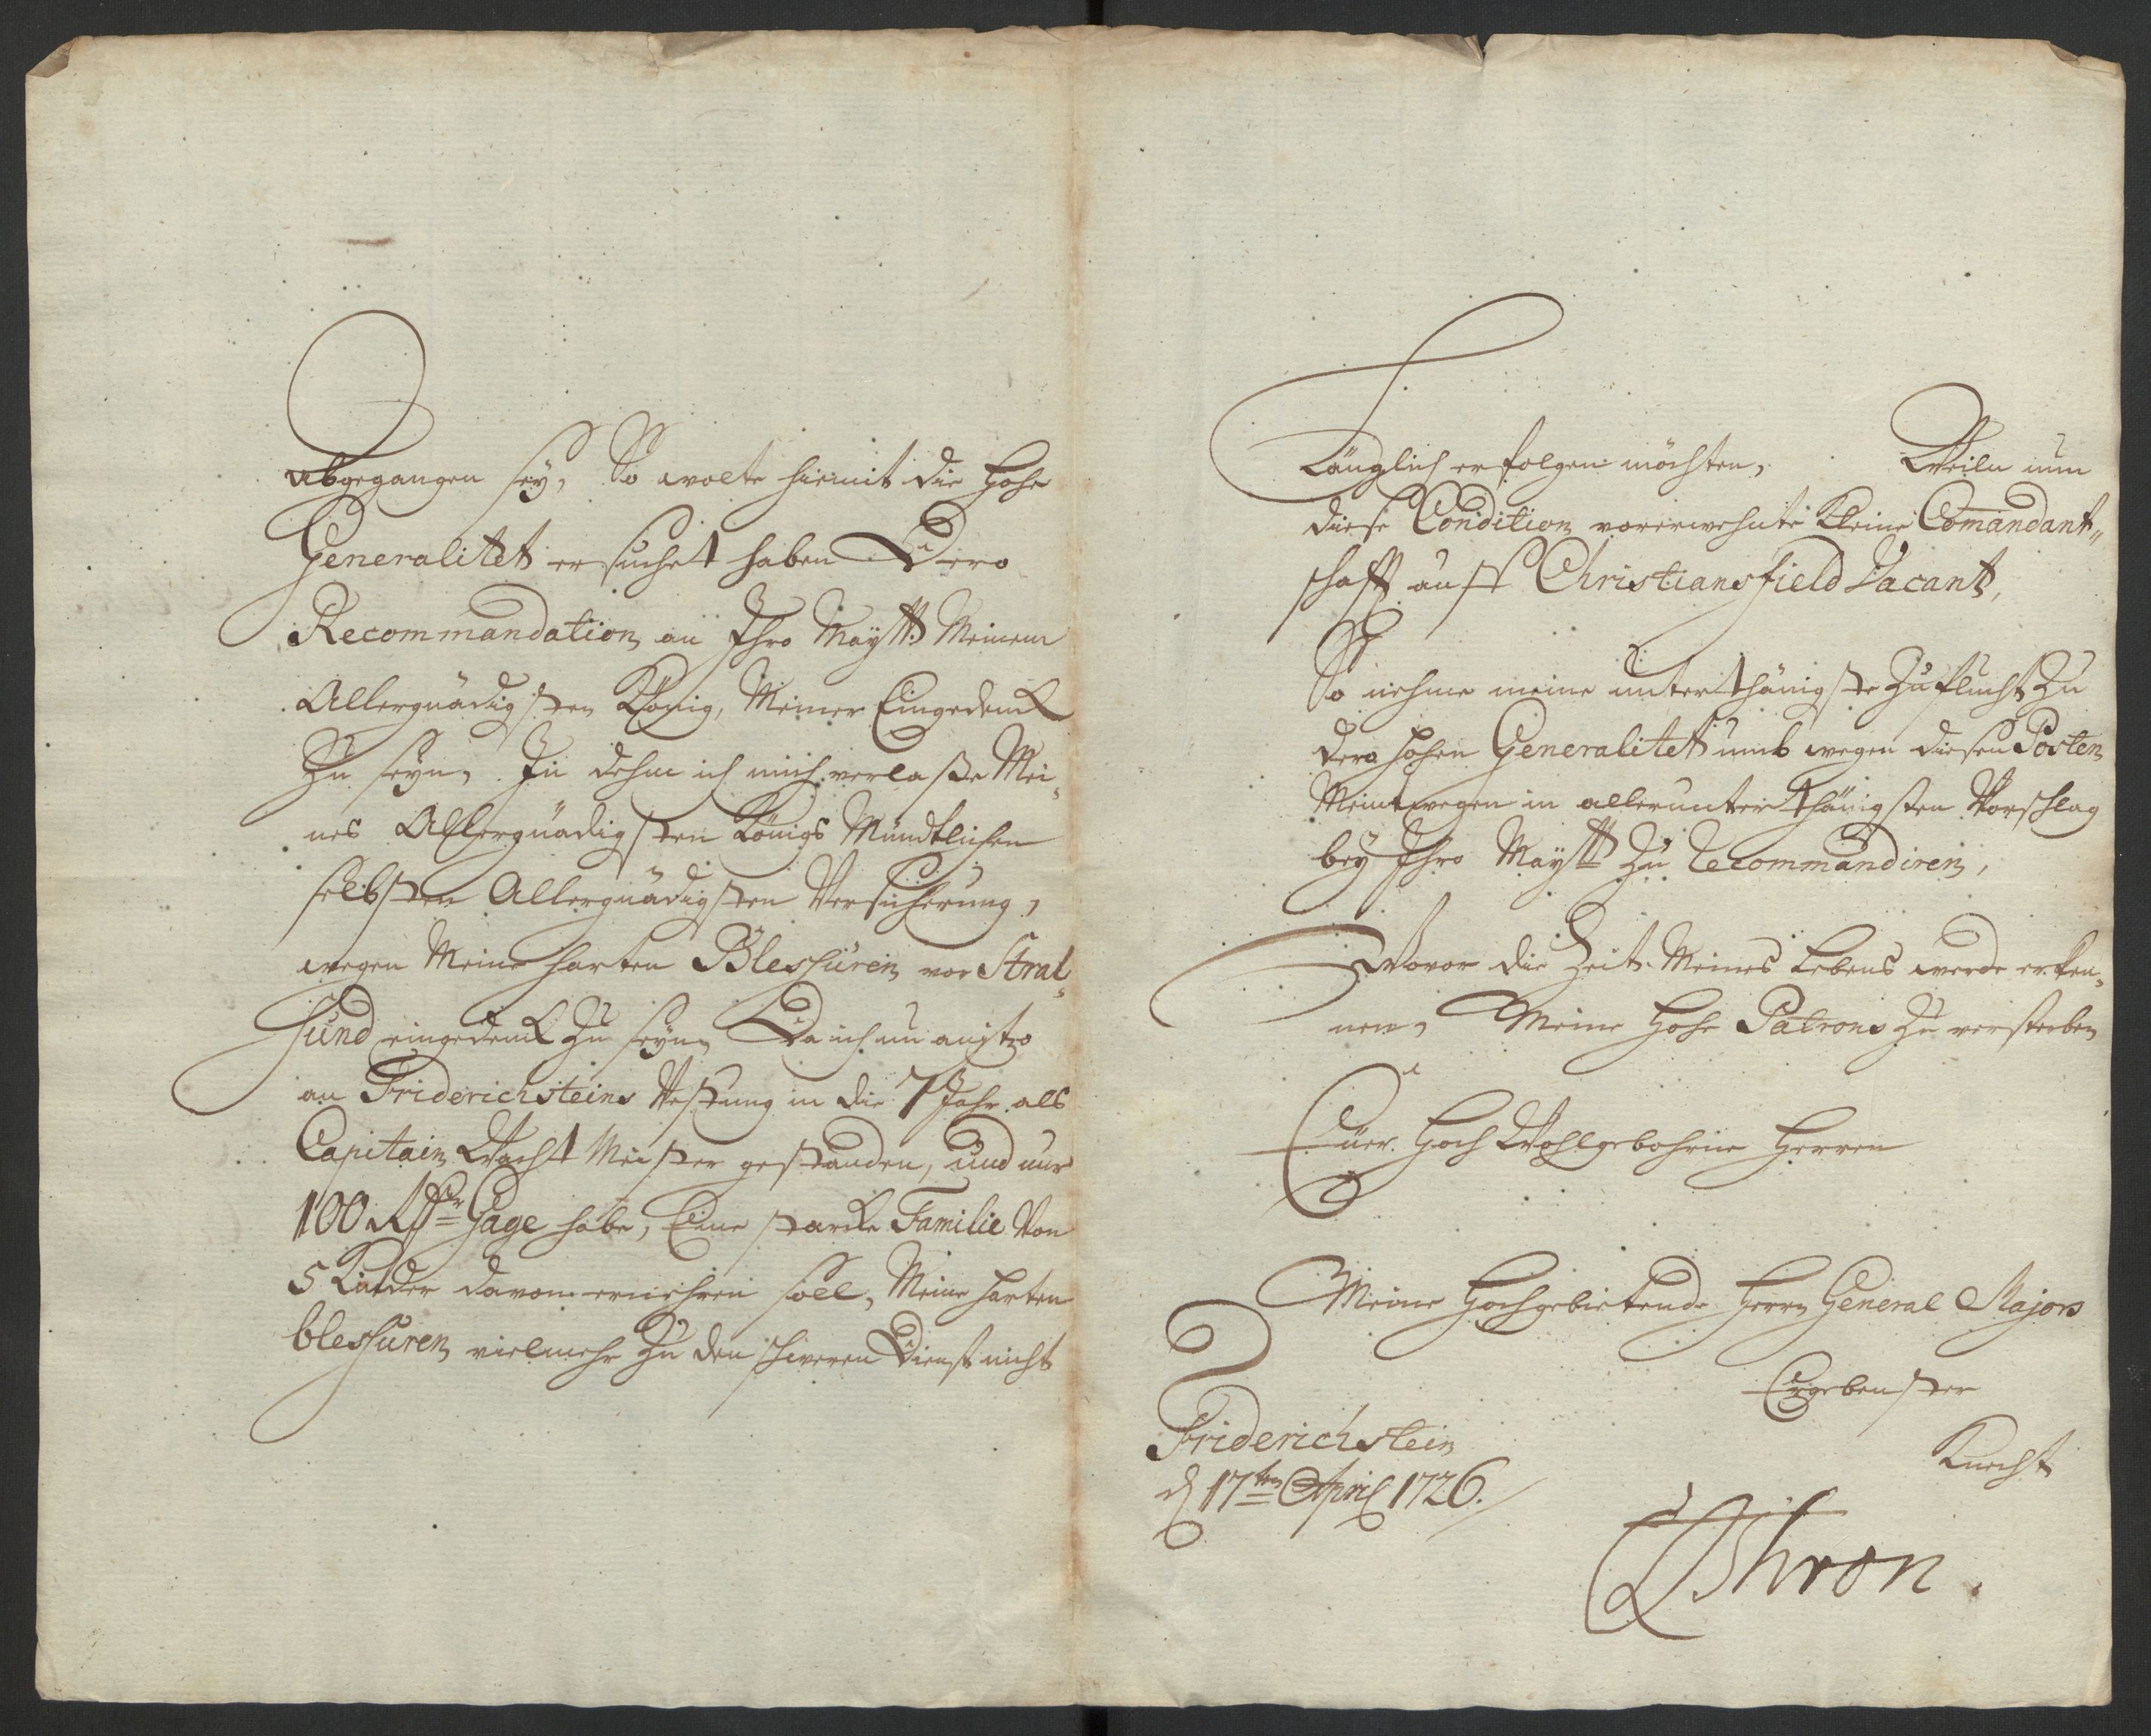 abgegangen sey, So wolte hiemit die Hohe
Generalitet ersuchet haben Dero
Recommandation an Ihro Maytt: Meinem
Allergnädigsten König, Meiner Eingedenck
Zu seyn, In dehm ich mich verlaße Mei„
nes Allergnädigsten Königs Mündtlichen
selbsten Allergnädigsten Versicherung,
wegen Meine harten Blessuren vor Stral„
sund eingedenck Zu seyn, Da ich nu anitzo
an Friderichsteins Vestung in die 7 Jahr als
Capitain Wacht Meister gestanden, und nur
100 Gage habe, Eine starcke Familie Von
5 Kinder davon ernehren soll, Meine harten
blessuren vielmehr Zu den schweren Dienst nicht
Länglich erfolgen möchten, Weiln nun
diese Condition vorerwehnte kleine Comandant„
schafft auff Christiansfield Vacant,
So nehme meine unterthänigste Zuflucht Zu
dero hohen Generalitet umb wegen diesen Posten
Meintwegen in allerunterthänigsten Vorschlag
bey Ihro Maytt Zu Recommandiren,
Wovor die Zeit Meines Lebens werde erken„
nen, Meine Hohe Patrons Zu versterben
Euer. Hoch Wohlgebohrne Herren
Meine Hochgebietende Herrn General Majors
Ergebenster
Knecht
Friderichstein
d 17ten April 1726.